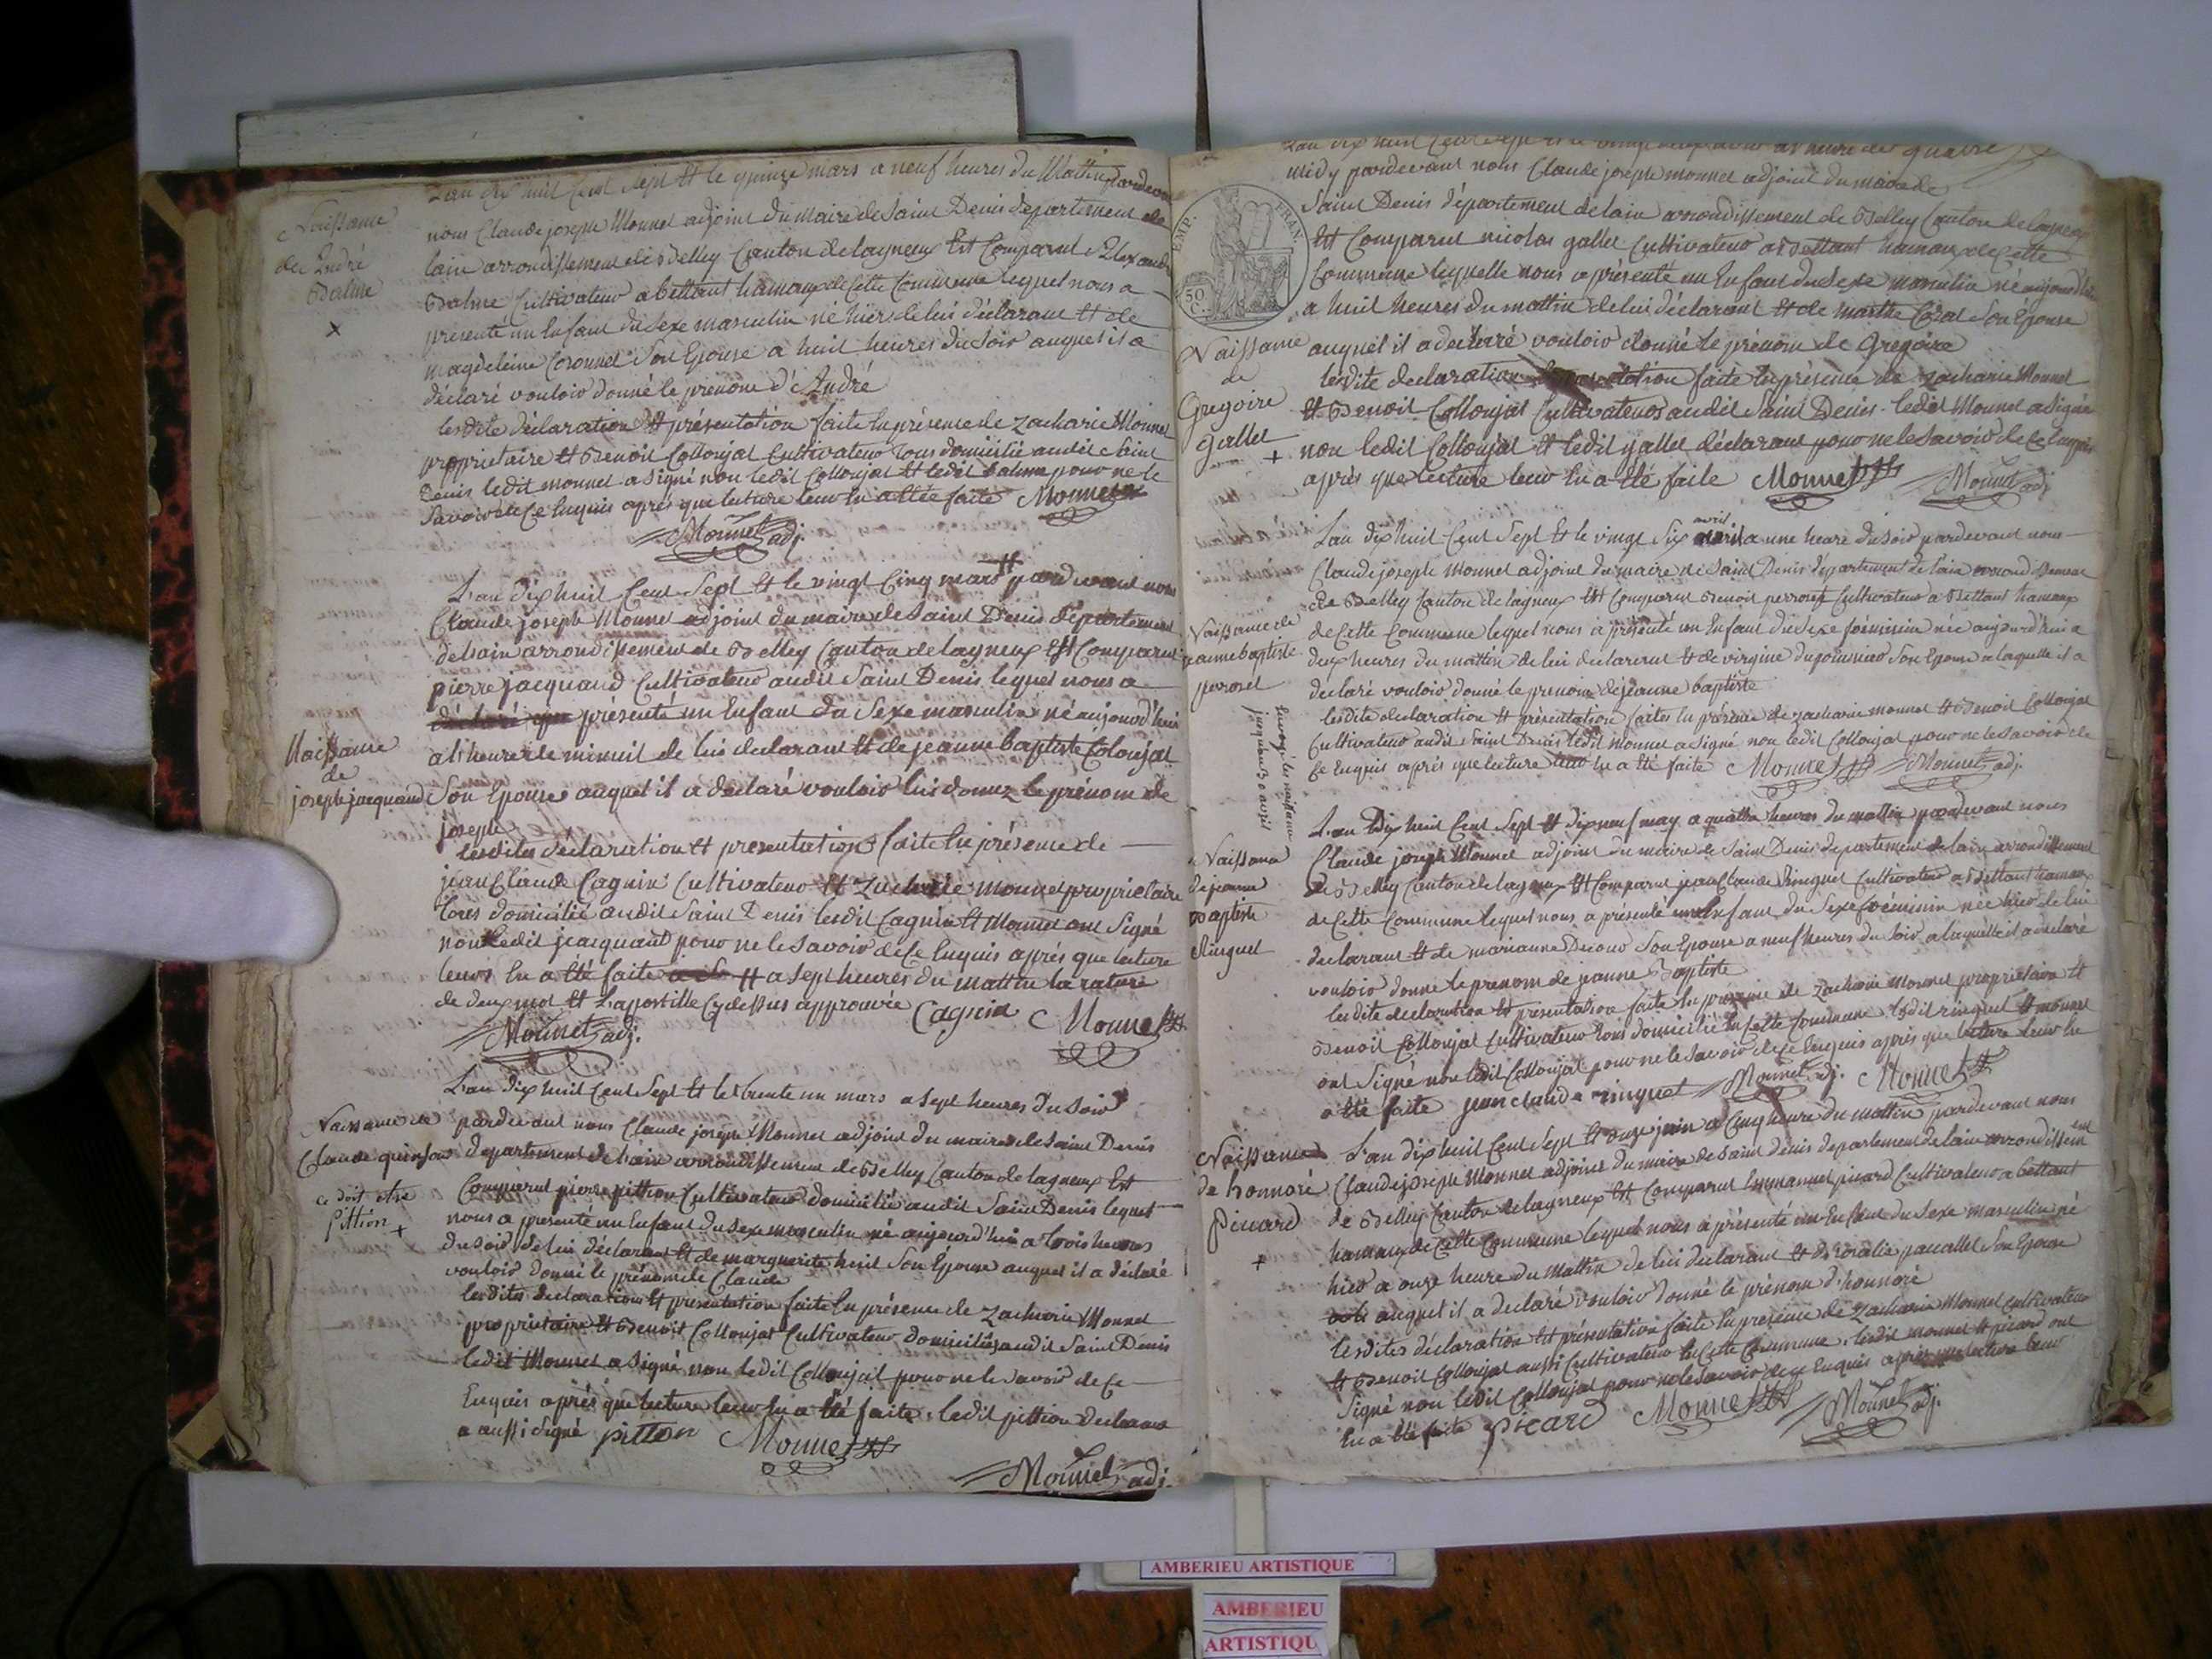 Naissance
de André
Balme
x
L'an dix huit Cent Sept Et le quinze mars a neuf heures du Mattin pardevant
nous Claude joseph Monnet adjoint du maire de Saint Denis departement de
lain arrondissement de Belley Canton de lagneux Est Comparut Alexandre
Balme Cultivateur a bettant hamaux de Cette Commune lequel nous a
présenté un Enfant du Sexe masculin né hier de lui déclarant Et de
magdeleine Coronnet Son Epouse a huit heures du Soir auquel il a
déclaré vouloir donné le prenom d'André
lesdite déclaration Et présentation faite En présence de zacharie Monnet
proprietaire Et Benoit Collonjat Cultivateur tous domicilié audit Saint
Denis ledit monnet a Signé non ledit Collonjat Et ledit balme pour ne le
Savoir de Ce Enquis après que lecture leur En a Eté faite Monnet
Monnet adj.
L'an dix huit Cent Sept Et le vingt Cinq mars # pardevant nous
Claude joseph Monnet adjoint du maire de Saint Denis département
de lain arrondissement de Belley Canton de lagneux Est Comparut
pierre jacquand Cultivateur audit Saint Denis lequel nous a
déclaré que présenté un Enfant du Sexe masculin né aujourd'hui
a l'heure de minuit de lui declarant Et de jeanne baptiste Colonjat
Naissance
de
joseph jacquand
Son Epouse auquel il a declaré vouloir lui donnez le prénom de
joseph
lesdites déclaration Et presentation faite En présence de
jean Claude Cagnin Cultivateur Et Zacharie monnet proprietaire
tous domicilié audit Saint Denis lesdit Cagnin Et Monnet ont Signé
non ledit jeacquant pour ne le Savoir de Ce Enquis après que lecture
leurs En a Eté faite # a Sept heures du mattin la rature
de deux mot Et Lapostille Cy dessus approuvée Cagnin Monnet
Monnet adj.
L'an dix huit Cent Sept Et le trente un mars a Sept heures du Soir
Naissance de
Claude quinson
ce doit etre
Pittion +
pardevant nous Claude joseph Monnet adjoint du maire de Saint Denis
departement de lain arrondissement de Belley Canton de lagneux Est
Comparut pierre pittion Cultivateur domicilié audit Saint Denis lequel
nous a presenté un Enfant du Sexe masculin né aujourd'hui a trois heures
du Soir de lui déclarant Et de marguerite Son Epouse auquel il a déclaré
vouloir donné le prénom de Claude
lesdites declaration Et presentation faite En présence de Zacharie Monnet
proprietaire Et Benoit Collonjat Cultivateur domiciliés audit Saint Denis
ledit Monnet a Signé non ledit Collonjat pour ne le Savoir de Ce
Enquis après que lecture leur En a Eté faite. ledit pittion declarant
a aussi Signé pittion Monnet
Monnet adj.
midy pardevant nous Claude joseph monnet adjoint du maire de
Saint Denis département de lain arrondissement de Belley Canton de lagneux
EMP. FRAN.
50 C.
Est Comparut nicolas gallet Cultivateur a Bettant hamaux de Cette
Commune lequelle nous a présenté un Enfant du Sexe masculin né aujourd'hui
a huit heures du mattin de lui déclarant Et de marthe Son Epouse
Naissance
de
Gregoire
gallet
+
auquel il a declaré vouloir donné le prénom de Gregoire
lesdite declaration faite En présence de zacharie Monnet
Et Benoit Collonjat Cultivateurs audit Saint Denis ledit Monnet a Signé
non ledit Collonjat Et ledit gallet déclarant pour ne le Savoir de Ce Enquis
après que lecture leur En a Eté faite Monnet Monnet adj.
L'an dix huit Cent Sept Et le vingt Six avril a une heure du Soir pardevant nous
Claude joseph Monnet adjoint du maire de Saint Denis département de lain arrondissement
de Belley Canton de lagneux Est Comparut Benoit perroset Cultivateur a Bettant hamaux
Naissance de
jeanne baptiste
perroset
de Cette Commune lequel nous a présenté un Enfant du Sexe féminin née aujourd'hui a
deux heures du mattin de lui declarant Et de virgine Son Epouse a laquelle il a
déclaré vouloir donné le prenom de jeanne baptiste
lesdite declaration Et présentation faites En présence de zacharie monnet Et Benoit Collonjat
Cultivateur audit Saint Denis ledit Monnet a Signé non ledit Collonjat pour ne le Savoir de
Ce Enquis après que lecture leur En a Eté faite Monnet Monnet adj.
Envoyé les naissance
jusquau 30 avril
L'an Dix huit Cent Sept Et dix neuf may a quattre heures du mattin pardevant nous
Naissance
de jeanne
Baptiste
Ringuet
Claude joseph Monnet adjoint du maire de Saint Denis departement de lain arrondissement
de Belley Canton de lagneux Est Comparut jean Claude Ringuet Cultivateur a Bettant hamaux
de Cette Commune lequel nous a présenté un Enfant du Sexe féminin née hier de lui
declarant Et de marianne Son Epouse a neuf heures du Soir a laquelle il a declaré
vouloir donné le prenom de jeanne Baptiste
lesdite declaration Et presentation faite En présence de Zacharie Monnet proprietaire Et
Benoit Collonjat Cultivateur tous domicilié En Cette Commune. ledit ringuet Et monnet
ont Signé non ledit Collonjat pour ne le Savoir de Ce Enquis après que lecture leur En
a Eté faite jean claude ringuet Monnet adj. Monnet
Naissance
de honnoré
Picard
+
L'an dix huit Cent Sept Et onze juin a Cinq heure du mattin pardevant nous
Claude joseph Monnet adjoint du maire de Saint Denis departement de lain arrondissement
de Belley Canton de lagneux Est Comparut Emmanuel picard Cultivateur a bettant
hamaux de Cette Commune lequel nous a présenté un Enfant du Sexe masculin né
hier a onze heure du Mattin de lui declarant Et de rosalie Son Epouse
auquel il a declaré vouloir donné le prénom d'honnoré
lesdites déclaration Et présentation faite En présence de Zacharie Monnet Cultivateur
Et Benoit Collonjat aussi Cultivateur En Cette Commune. lesdit monnet Et picard ont
Signé non ledit Collonjat pour ne le Savoir de Ce Enquis après que lecture leur
En a Eté faite Picard Monnet Monnet adj.
AMBERIEU ARTISTIQUE
AMBERIEU
ARTISTIQU